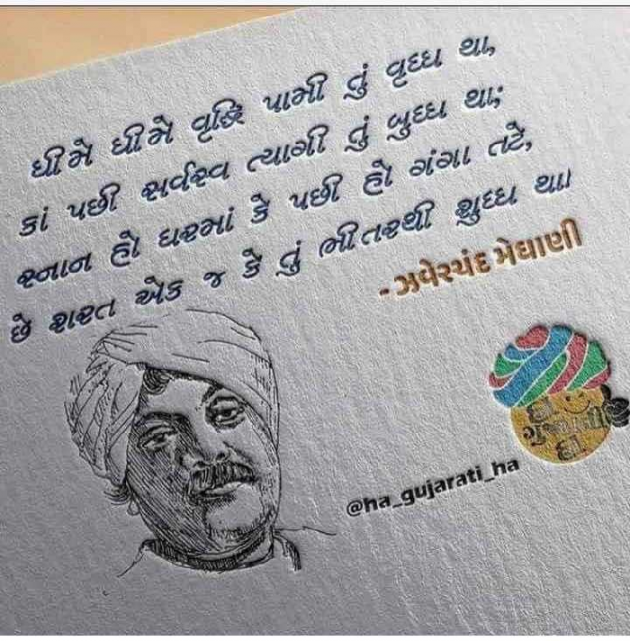 ધીમે ધીમે વૃદ્ધિ પામી તું વૃદ્ધ થા,
કાં પછી સર્વસ્વ ત્યાગી તું બુદ્ધ થા;
સ્નાન હો ઘરમાં કે પછી હો ગંગા તટે,
છે શરત એક જ કે તું ભીતરથી શુદ્ધ થા!
- ઝવેરચંદ મેઘાણી
હા
ગુજરાતી
હા
@ha_gujarati_ha